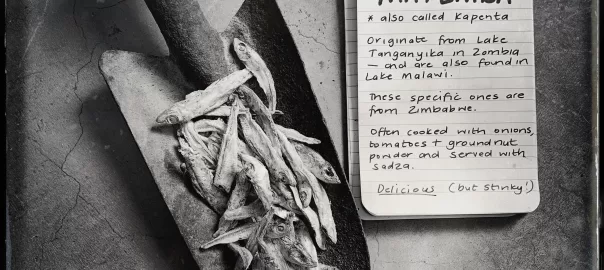 * also called Kapenta
Originate from Lake
Tanganyika in Zambia
— and are also found in
Lake Malawi.
These specific ones are
from Zimbabwe.
Often cooked with onions,
tomatoes + groundnut
powder and served with
sadza.
Delicious (but stinky!)